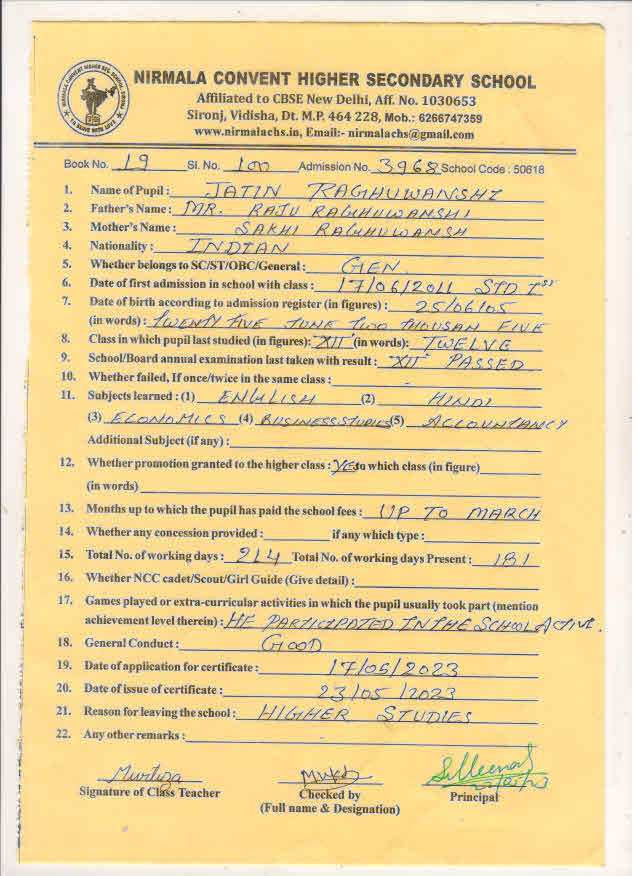 NIRMALA CONVENT HIGHER SECONDARY SCHOOL
Affiliated to CBSE New Delhi, Aff. No. 1030653
Sironj, Vidisha, Dt. M.P. 464 228, Mob.: 6266747359
www.nirmalachs.in, Email:- nirmalachs@gmail.com
Book No. 19 Sl. No. 100 Admission No. 3968 School Code : 50618
1. Name of Pupil : JATIN RAGHUWANSHI
2. Father's Name : MR. RAJU RAGHUWANSHI
3. Mother's Name : SAKHI RAGHUWANSH
4. Nationality : INDIAN
5. Whether belongs to SC/ST/OBC/General : GEN.
6. Date of first admission in school with class : 17/06/2011 STD Ist
7. Date of birth according to admission register (in figures) : 25/06/05
(in words) : TWENTY FIVE JUNE TWO THOUSAN FIVE
8. Class in which pupil last studied (in figures): "XII" (in words): TWELVE
9. School/Board annual examination last taken with result : "XII" PASSED
10. Whether failed, If once/twice in the same class : -
11. Subjects learned : (1) ENGLISH (2) HINDI
(3) ECONOMICS (4) BUSINESS STUDIES (5) ACCOUNTANCY
Additional Subject (if any) :
12. Whether promotion granted to the higher class : YES to which class (in figure)
(in words)
13. Months up to which the pupil has paid the school fees : UP TO MARCH
14. Whether any concession provided : if any which type :
15. Total No. of working days : 214 Total No. of working days Present : 181
16. Whether NCC cadet/Scout/Girl Guide (Give detail) :
17. Games played or extra-curricular activities in which the pupil usually took part (mention
achievement level therein) : HE PARTICIPATED IN THE SCHOOL ACTIVE.
18. General Conduct : GOOD
19. Date of application for certificate : 17/05/2023
20. Date of issue of certificate : 23/05/2023
21. Reason for leaving the school : HIGHER STUDIES
22. Any other remarks :
Murtuza
Signature of Class Teacher
Checked by
(Full name & Designation)
Principal